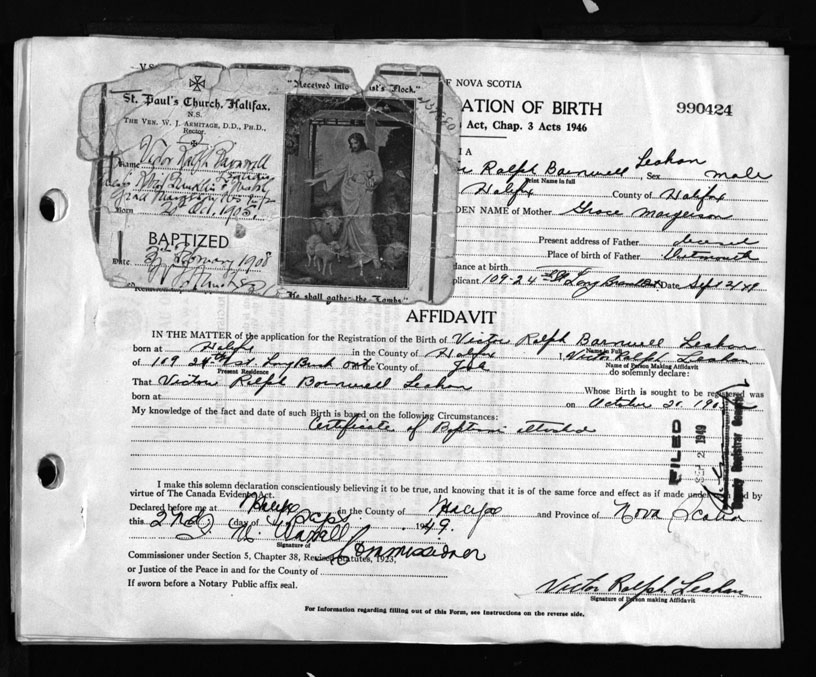 V.S.
"Received into
ist's Flock."
St. Paul's Church, Halifax,
N.S.
THE VEN. W. J. ARMITAGE, D.D., PH.D.,
Rector.
Name Victor Ralph Barnwell
Born
BAPTIZED
Date February 1908
He shall gather the Lambs"
OF NOVA SCOTIA
ATION OF BIRTH
990424
Act, Chap. 3 Acts 1946
Ralph Barnwell Leahan, Sex male
Print Name in full
Halifax County of Halifax
DEN NAME of Mother Grace
Present address of Father
Place of birth of Father Dartmouth
dance at birth
plicant 109-24 St Long Branch Ont Date Sept 2/49
AFFIDAVIT
IN THE MATTER of the application for the Registration of the Birth of Victor Ralph Barnwell Leahan
Name in Full
born at Halifax in the County of Halifax I, Victor Ralph Leahan
Name of Person Making Affidavit
of 109 24th St Long Branch Ont in the County of do solemnly declare:
Present Residence
That Victor Ralph Barnwell Leahan Whose Birth is sought to be registered was
born at on October 21, 190
My knowledge of the fact and date of such Birth is based on the following Circumstances:
Certificate of Baptism attached
FILED
SEP 2 1949
Deputy Registrar General
I make this solemn declaration conscientiously believing it to be true, and knowing that it is of the same force and effect as if made under by
virtue of The Canada Evidence Act.
Declared before me at Halifax in the County of Halifax and Province of Nova Scotia
this 2nd day of Sept 1949.
Signature of
Commissioner
Commissioner under Section 5, Chapter 38, Revised Statutes, 1923,
or Justice of the Peace in and for the County of
If sworn before a Notary Public affix seal.
Victor Ralph Leahan
Signature of Person making Affidavit
For Information regarding filling out of this Form, see Instructions on the reverse side.